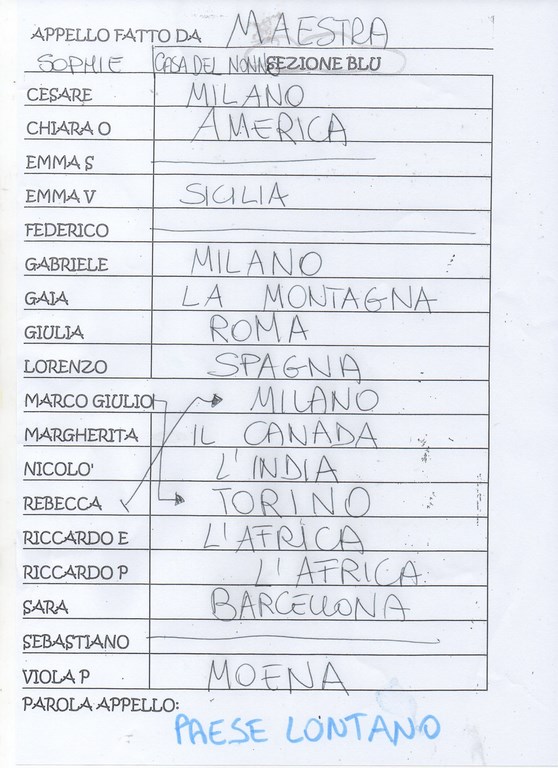 APPELLO FATTO DA MAESTRA
SOPHIE CASA DEL NONNO SEZIONE BLU
CESARE MILANO
CHIARA O AMERICA
EMMA S
EMMA V SICILIA
FEDERICO
GABRIELE MILANO
GAIA LA MONTAGNA
GIULIA ROMA
LORENZO SPAGNA
MARCO GIULIO MILANO
MARGHERITA IL CANADA
NICOLO' L'INDIA
REBECCA TORINO
RICCARDO E L'AFRICA
RICCARDO P L'AFRICA
SARA BARCELLONA
SEBASTIANO
VIOLA P MOENA
PAROLA APPELLO:
PAESE LONTANO